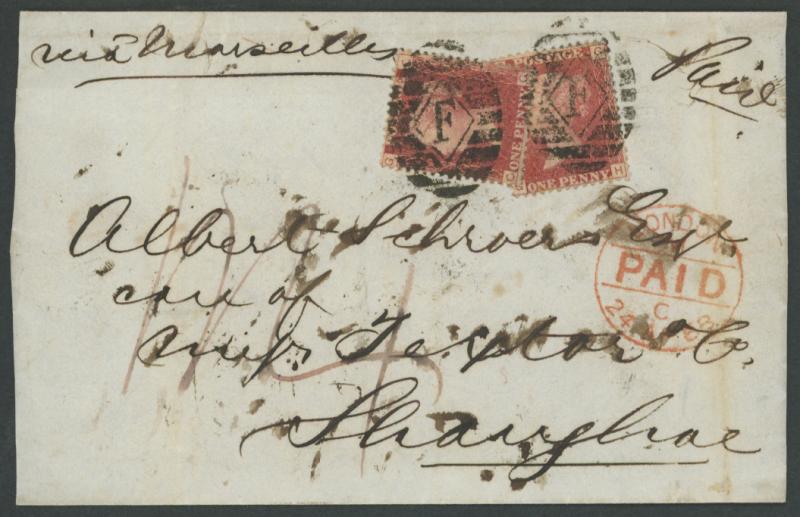 via Marseilles
Paid
POSTAGE
F
F
ONE PENNY
ONE PENNY
Albert Schroers Esqr
care of
Messrs Textor & Co.
Shanghae
LONDON
PAID
C
24